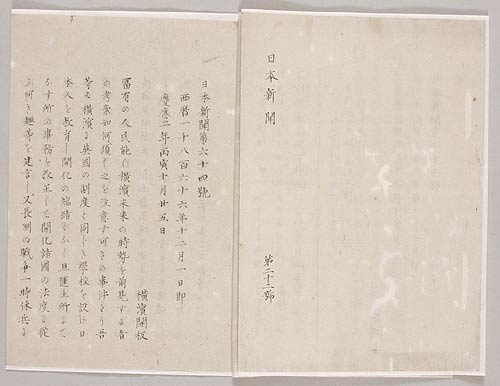 日本新聞
第二十三號
日本新聞第六十四號
西暦一千八百六十六年十二月一日即
慶應二年丙寅十月廿五日
横濱開板
富有の人民能く横濱未来の時勢を前見する者
の考案如何須く之を注意す可きの事件なり吾
等は横濱に英國の制度に同しき學校を設け日
本人を教育し開化の端緒をなし且運上所にて
なす所の事務を改正して開化諸國の法度に從
ふ可き趣等を建言し又長州の戰争一時休兵に